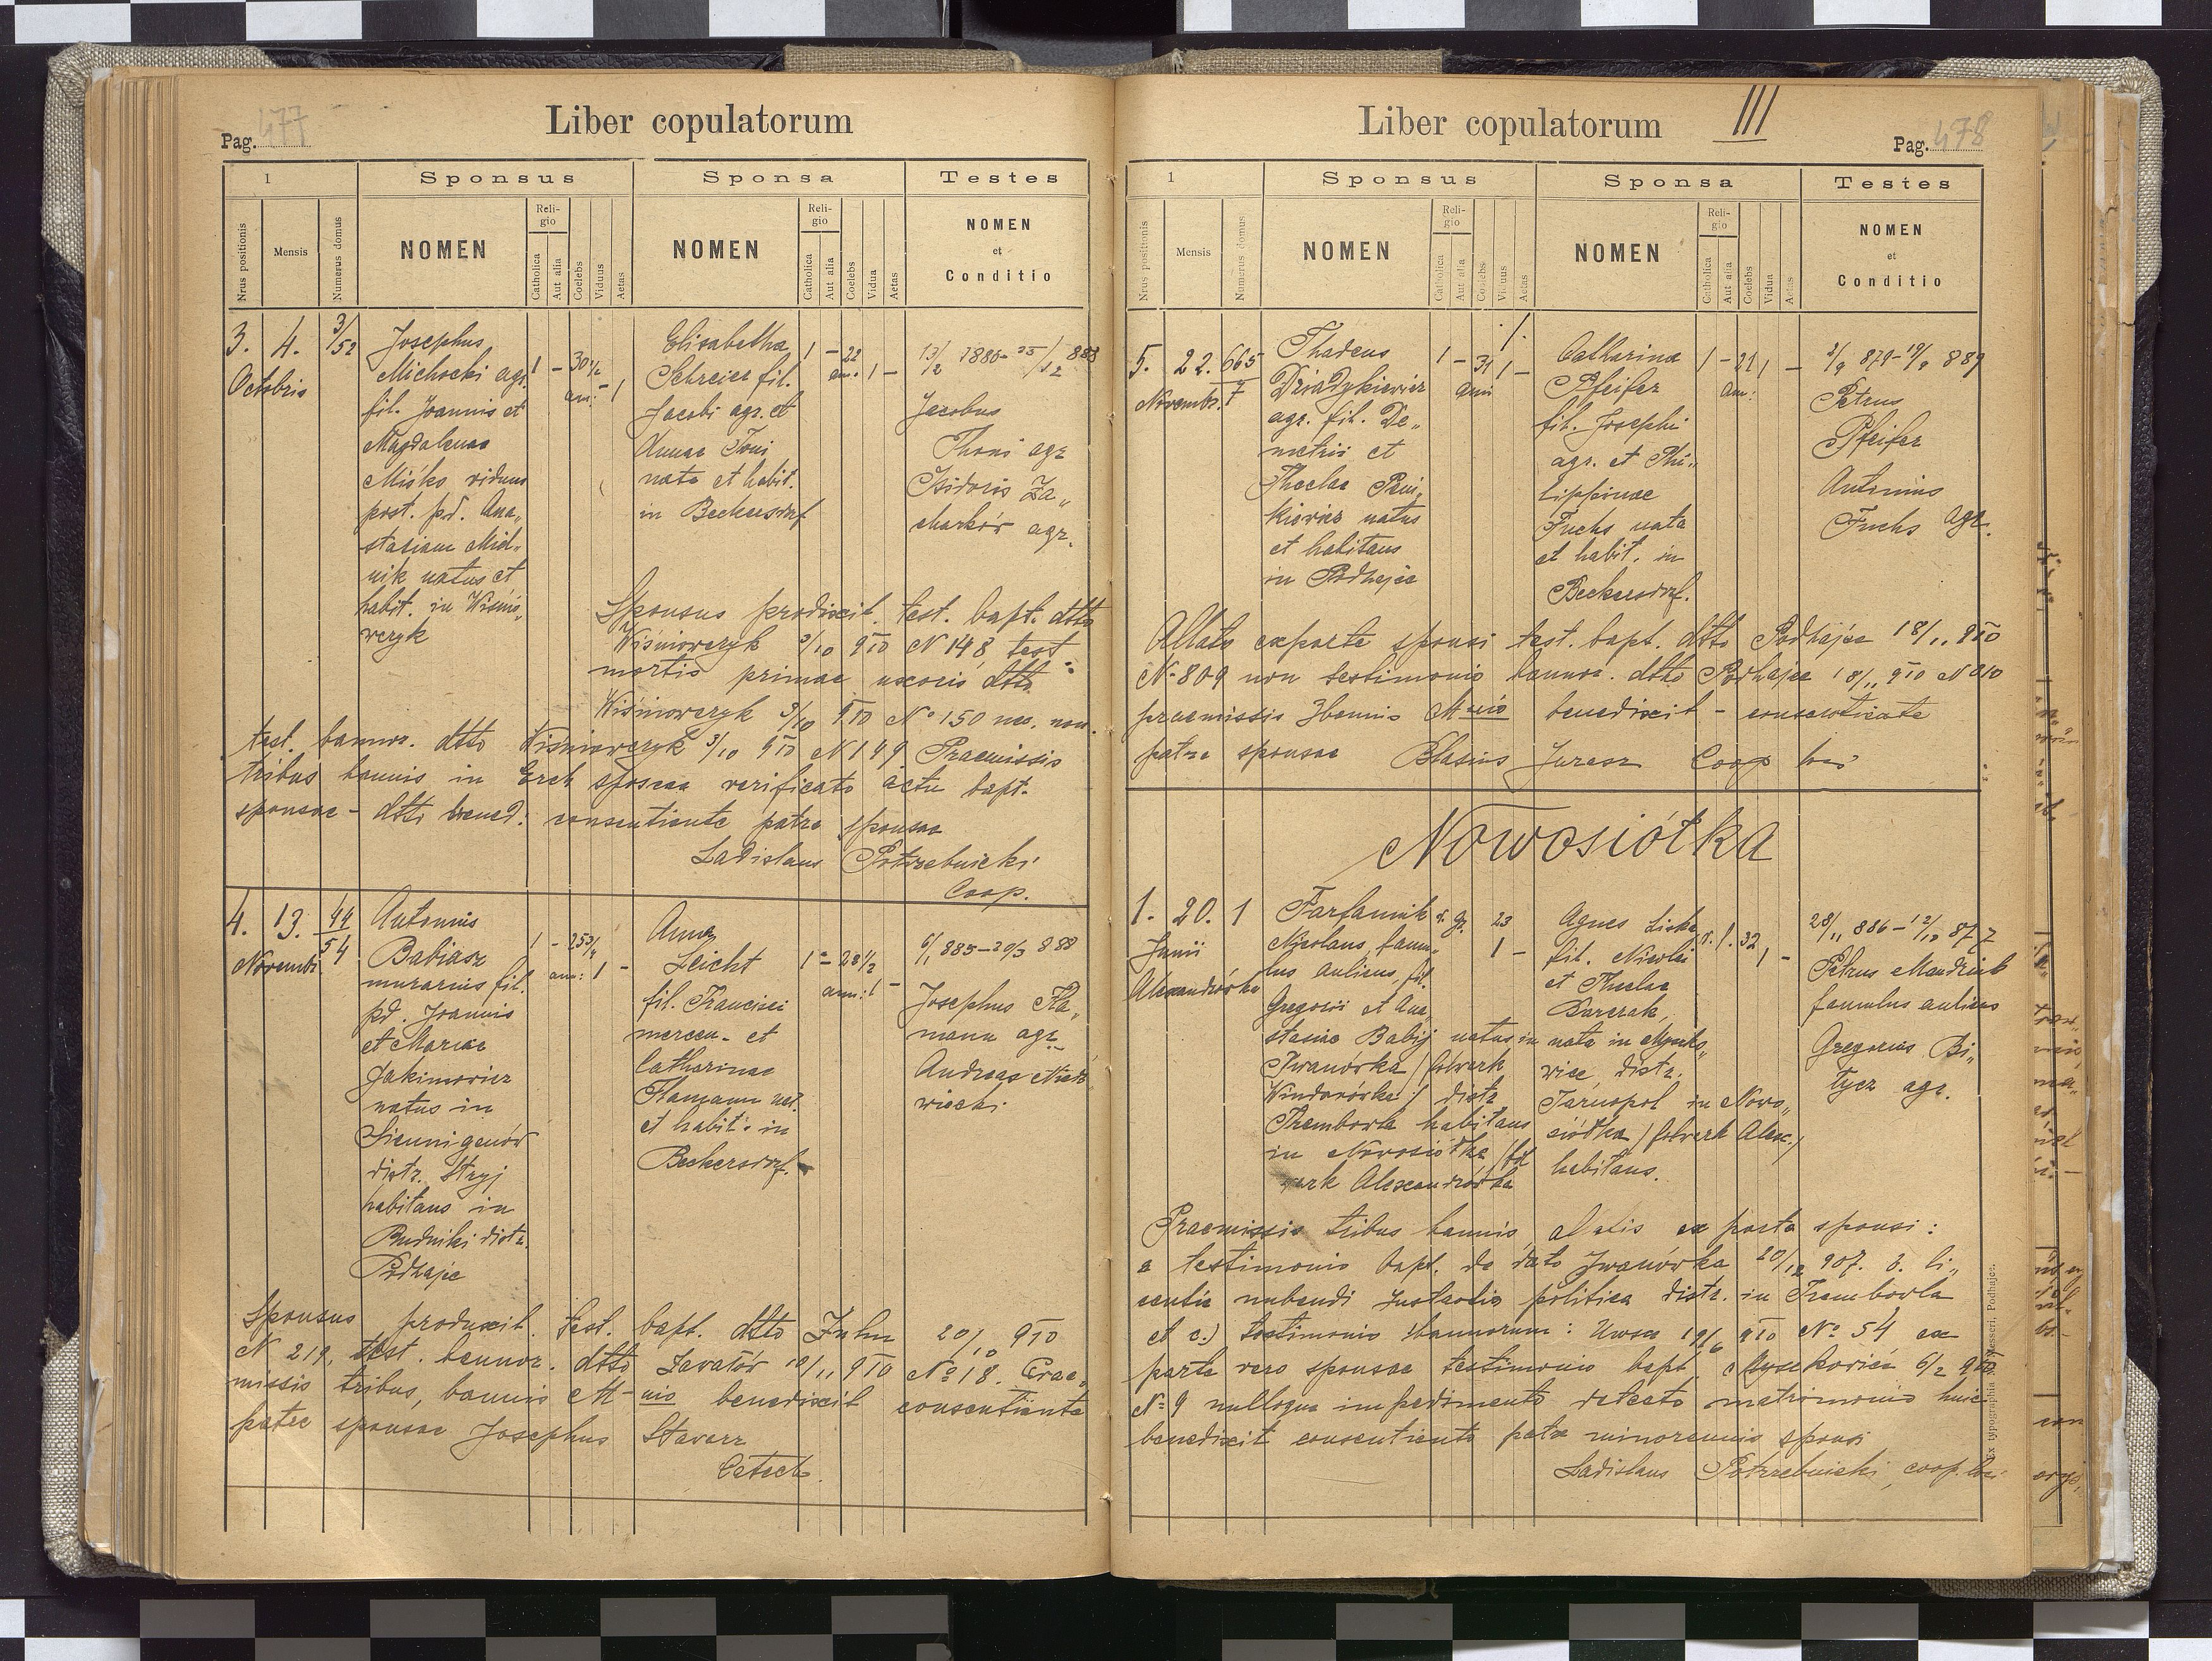 Liber copulatorum
Pag. 477
1
Sponsus
Sponsa
Testes
Nrus positionis
Mensis
Numerus domus
NOMEN
Religio
Catholica
Aut alia
Coelebs
Viduus
Aetas
NOMEN
Religio
Catholica
Aut alia
Coelebs
Vidua
Aetas
NOMEN
et
Conditio
3. 4. 3/52
Octobris
Josephus
Michocki agr.
fil. Joannis et
Magdalenae
Misko viduus
post. pd. Ana„
stasiam Miel„
nik natus et
habit. in Wisnio„
wczyk
1 - 30 1/2
ann: - 1
Elisabetha
Schreier fil.
Jacobi agr. et
Annae Toni
nata et habit.
in Beckersdorf
1 - 22
ann. 1 -
13/2 1880 - 25/12 888
Jacobus
Thoni agr
Isidoris Za„
charków agr.
Sponsus produxit. test. bapt. dtto
Wiśniowczyk 3/10 910 N 148, test
mortis primae uxoris dtto.
Wiśniowczyk 3/10 910 No 150 nec. non.
test. bannor. dtto Wiśniowczyk 3/10 910 N 149 Praemissis
tribus bannis in verificato actu bapt.
sponsae - dtto bened: consentiente patre sponsae
Ladislaus Potrzebnicki
Coop.
4. 13. 44/54
Novembr.
Antonius
Babiasz
murarius fil.
pd. Joannis
et Mariae
Jakimowicz
natus in
distr. Stryj
habitans in
Rudniki distr.
Podhajce
1 - 25 3/4
ann: 1 -
Anna
Leicht
fil. Francisci
mercen. et
Catharinae
Hamann nat.
et habit. in
Beckersdorf.
1 - 28 1/2
ann: 1 -
6/1 885 - 20/3 888
Josephus Ha„
mann agr.
Andreas
Sponsus produxit. test. bapt. dtto 20/10 910
N 219, test. bannor. dtto Zawałów 10/11 910 No 18. Prae„
missis tribus, bannis M-nio benedixit consentiente
patre sponsae Josephus Stavarz
Catech.
Liber copulatorum
III
Pag. 478
1
Sponsus
Sponsa
Testes
Nrus positionis
Mensis
Numerus domus
NOMEN
Religio
Catholica
Aut alia
Coelebs
Viduus
Aetas
NOMEN
Religio
Catholica
Aut alia
Coelebs
Vidua
Aetas
NOMEN
et
Conditio
5. 22. 665/7
Novembr.
Thadeus
Dziadykiewicz
agr. fil. De„
metrii et
Theclae Pani„
kiewicz natus
et habitans
in Podhajce
1 - 31 1 -
anni
Catharina
Pfeifer
fil. Josephi
agr. et Phi„
lippinae
Fuchs nata
et habit. in
Beckersdorf.
1 - 21 1 -
ann:
2/9 879 - 19/9 889
Petrus
Pfeifer
Antonius
Fuchs agr.
Allato exparte sponsi test. bapt. dtto Podhajce 18/11 910
No 809 non testimonio bannor. dtto Podhajce 18/11 910 N 210
praemissis 3bannis M-nio benedixit - consentiente
patre sponsae Blasius Jurasz Coop loci
Nowosiółka
1. 20. 1
Junii
Alexandrówka
Farfannik
Nicolaus, famu„
lus aulicus, fil.
Gregorii et Ana„
stasiae Babij natus in
Iwanówka / folwark
distr
Trembowla habitans
in Nowosiółka / fol
wark Alexandrówka
r. gr. 23
1 -
Agnes Liska
fil. Nicolai
et Theclae
Karczak,
nata in Myszko„
wice, distr.
Tarnopol in Nowo„
siółka / folwark Alex. /
habitans.
r. l. 32
1 -
28/11 886 - 12/10 877
Petrus Mandziuk
famulus aulicus
Gregorius Bi„
tycz agr.
Praemissis tribus bannis, allatis ex parte sponsi:
a testimonio bapt. de dato Iwanówka 20/12 907. b. li„
centia nubendi politica distr. in Trembowla
et c.) testimonio bannorum: Uwsza 19/6 910 No 54 ex
parte vero sponsae testimonio bapt. Myszkowice 6/2 910
No 9 nulloque impedimento detecto matrimonio huic
benedixit consentiente patre minorennis sponsi
Ladislaus Potrzebnicki, coop. loci
Ex typographia M. Messeri, Podhajce.